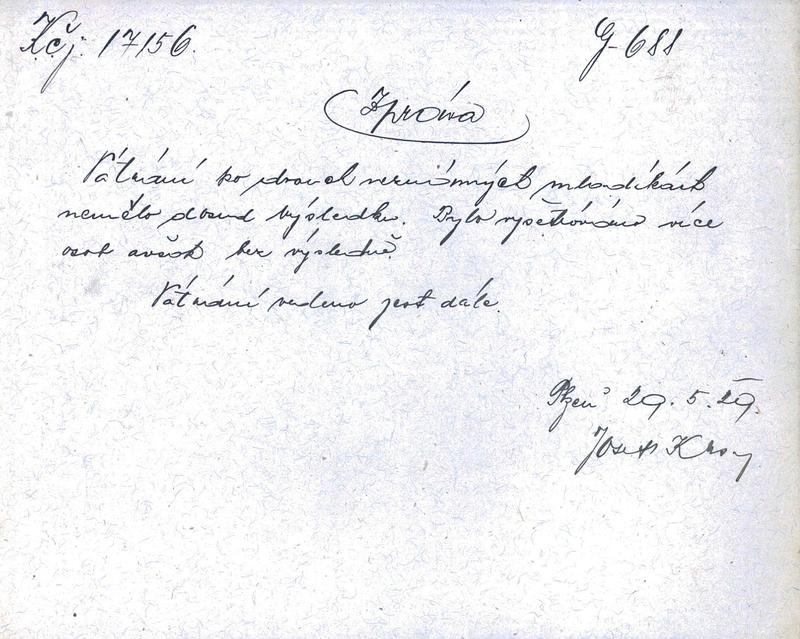 Kčj. 17156. G-688
Zpráva
Pátrání po dvou neznámých mladíkách
nemělo dosud výsledku. Bylo vyšetřováno více
osob avšak bez výsledně.
Pátrání vedeno jest dále.
Plzeň 29. 5. 29.
Josef